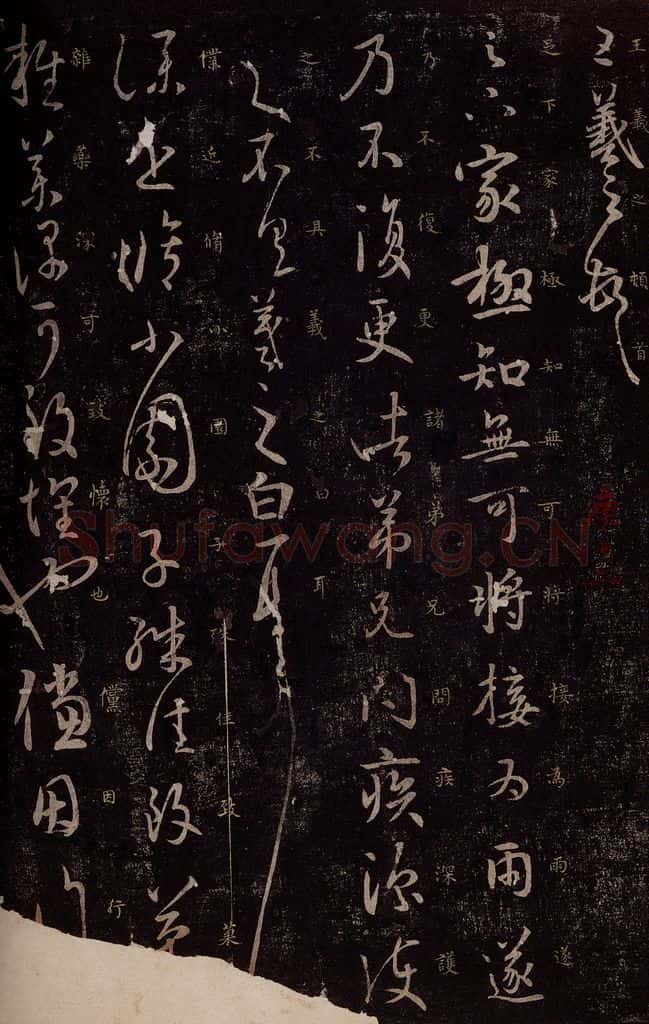 王羲之頓首
王羲之頓首
乏下家極知無可將接為雨遂
乏下家極知無可將接為雨遂
乃不復更諸弟兄問疾深護
乃不復更諸弟兄問疾深護
之不具羲之白耳
之不具羲之白耳
僕近脩小園子殊佳致菓
僕近脩小園子殊佳致菓
雜藥深可致懷也儻因行
雜藥深可致懷也儻因行
Shufawang.CN